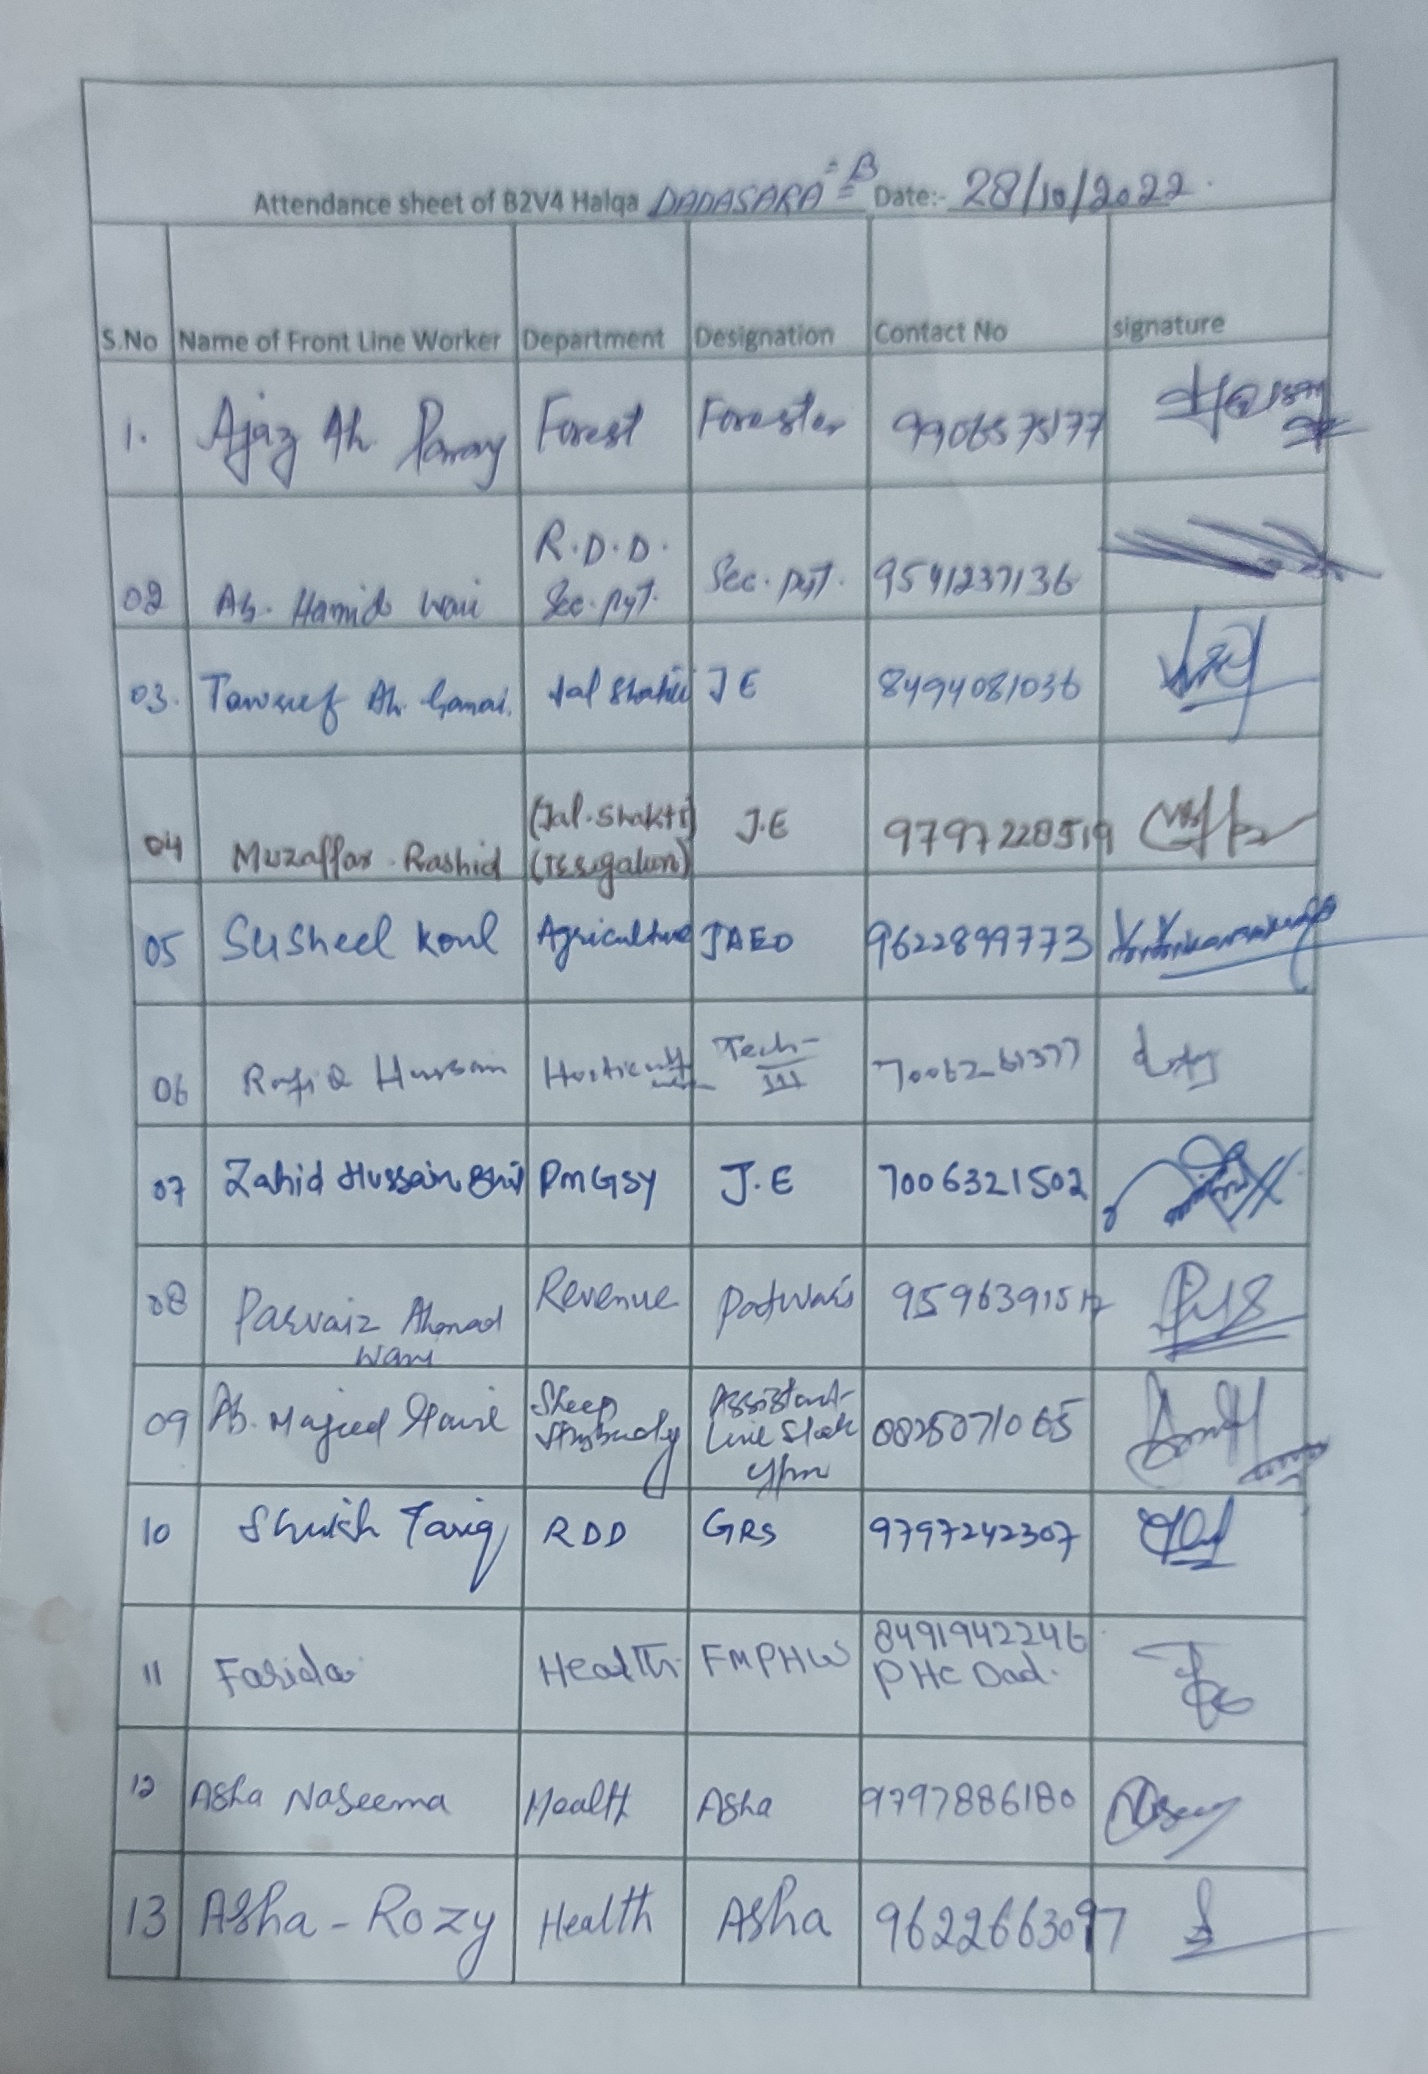 Attendance sheet of B2V4 Halqa DADASARA - B Date:- 28/10/2022
S.No Name of Front Line Worker Department Designation Contact No signature
1. Ajaz Ah. Parray Forest Forester 9906575177
02 Ab. Hamid Wani R.D.D. Sec. pyt. Sec. pyt. 9541237136
03. Tawseef Ah. Ganai. Jal Shakti JE 8494081036
04 Muzaffar Rashid (Jal.Shakti) J.E 9797228519
05 Susheel Koul Agriculture JAEO 9622899773
06 Rafiq Hussain Tech-III 7006261377
07 Zahid Hussain PMGSY J.E 7006321502
08 Parvaiz Ahmad Wani Revenue Patwari
09 Ab. Majeed Sheep Assistant
10 Tariq RDD GRS 9797242307
11 Farida Health FMPHW 8491942246
PHC Dad.
12 Asha Naseema Health Asha 9797886180
13 Asha-Rozy Health Asha 9622663097